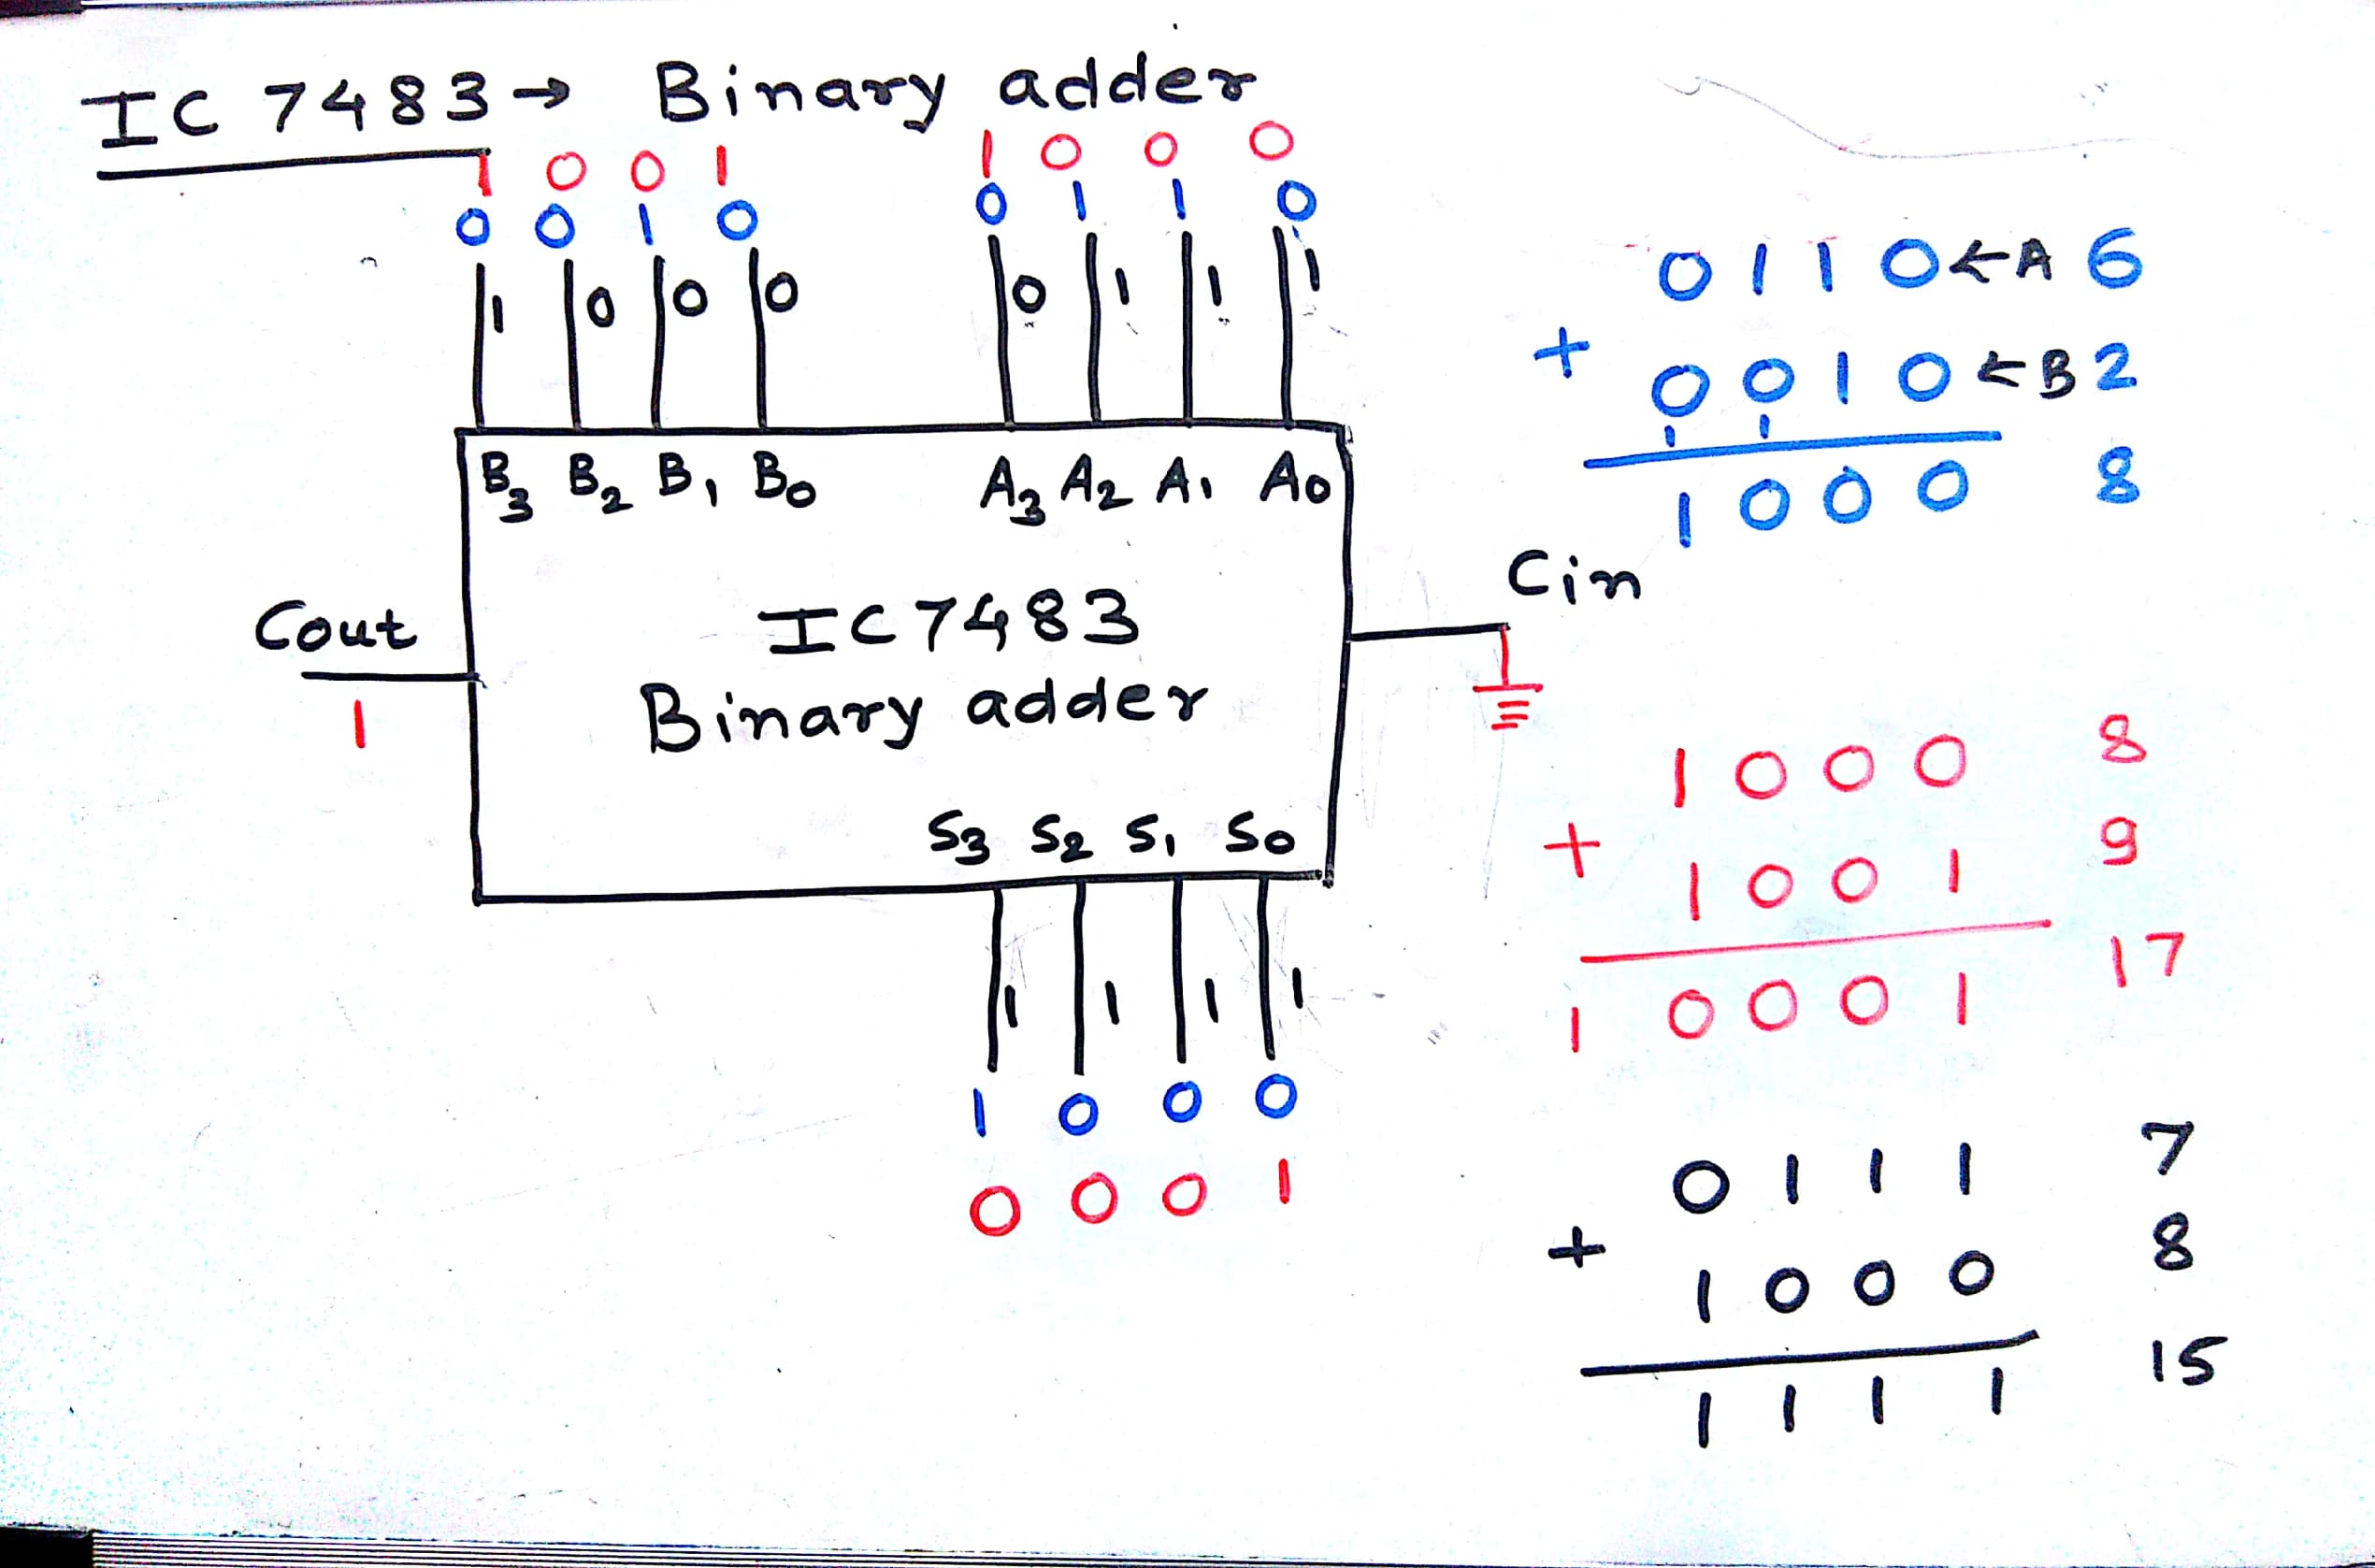 IC 7483 → Binary adder
1 0 0 1 1 0 0 0
0 0 1 0 0 1 1 0
1 0 0 0 0 1 1 1
B3 B2 B1 B0 A3 A2 A1 A0
Cout
1
IC 7483
Binary adder
Cin
S3 S2 S1 S0
1 1 1 1
1 0 0 0
0 0 0 1
0 1 1 0 ← A 6
+ 0 0 1 0 ← B 2
1 1
1 0 0 0 8
1 0 0 0 8
+ 1 0 0 1 9
1 0 0 0 1 17
0 1 1 1 7
+ 1 0 0 0 8
1 1 1 1 15